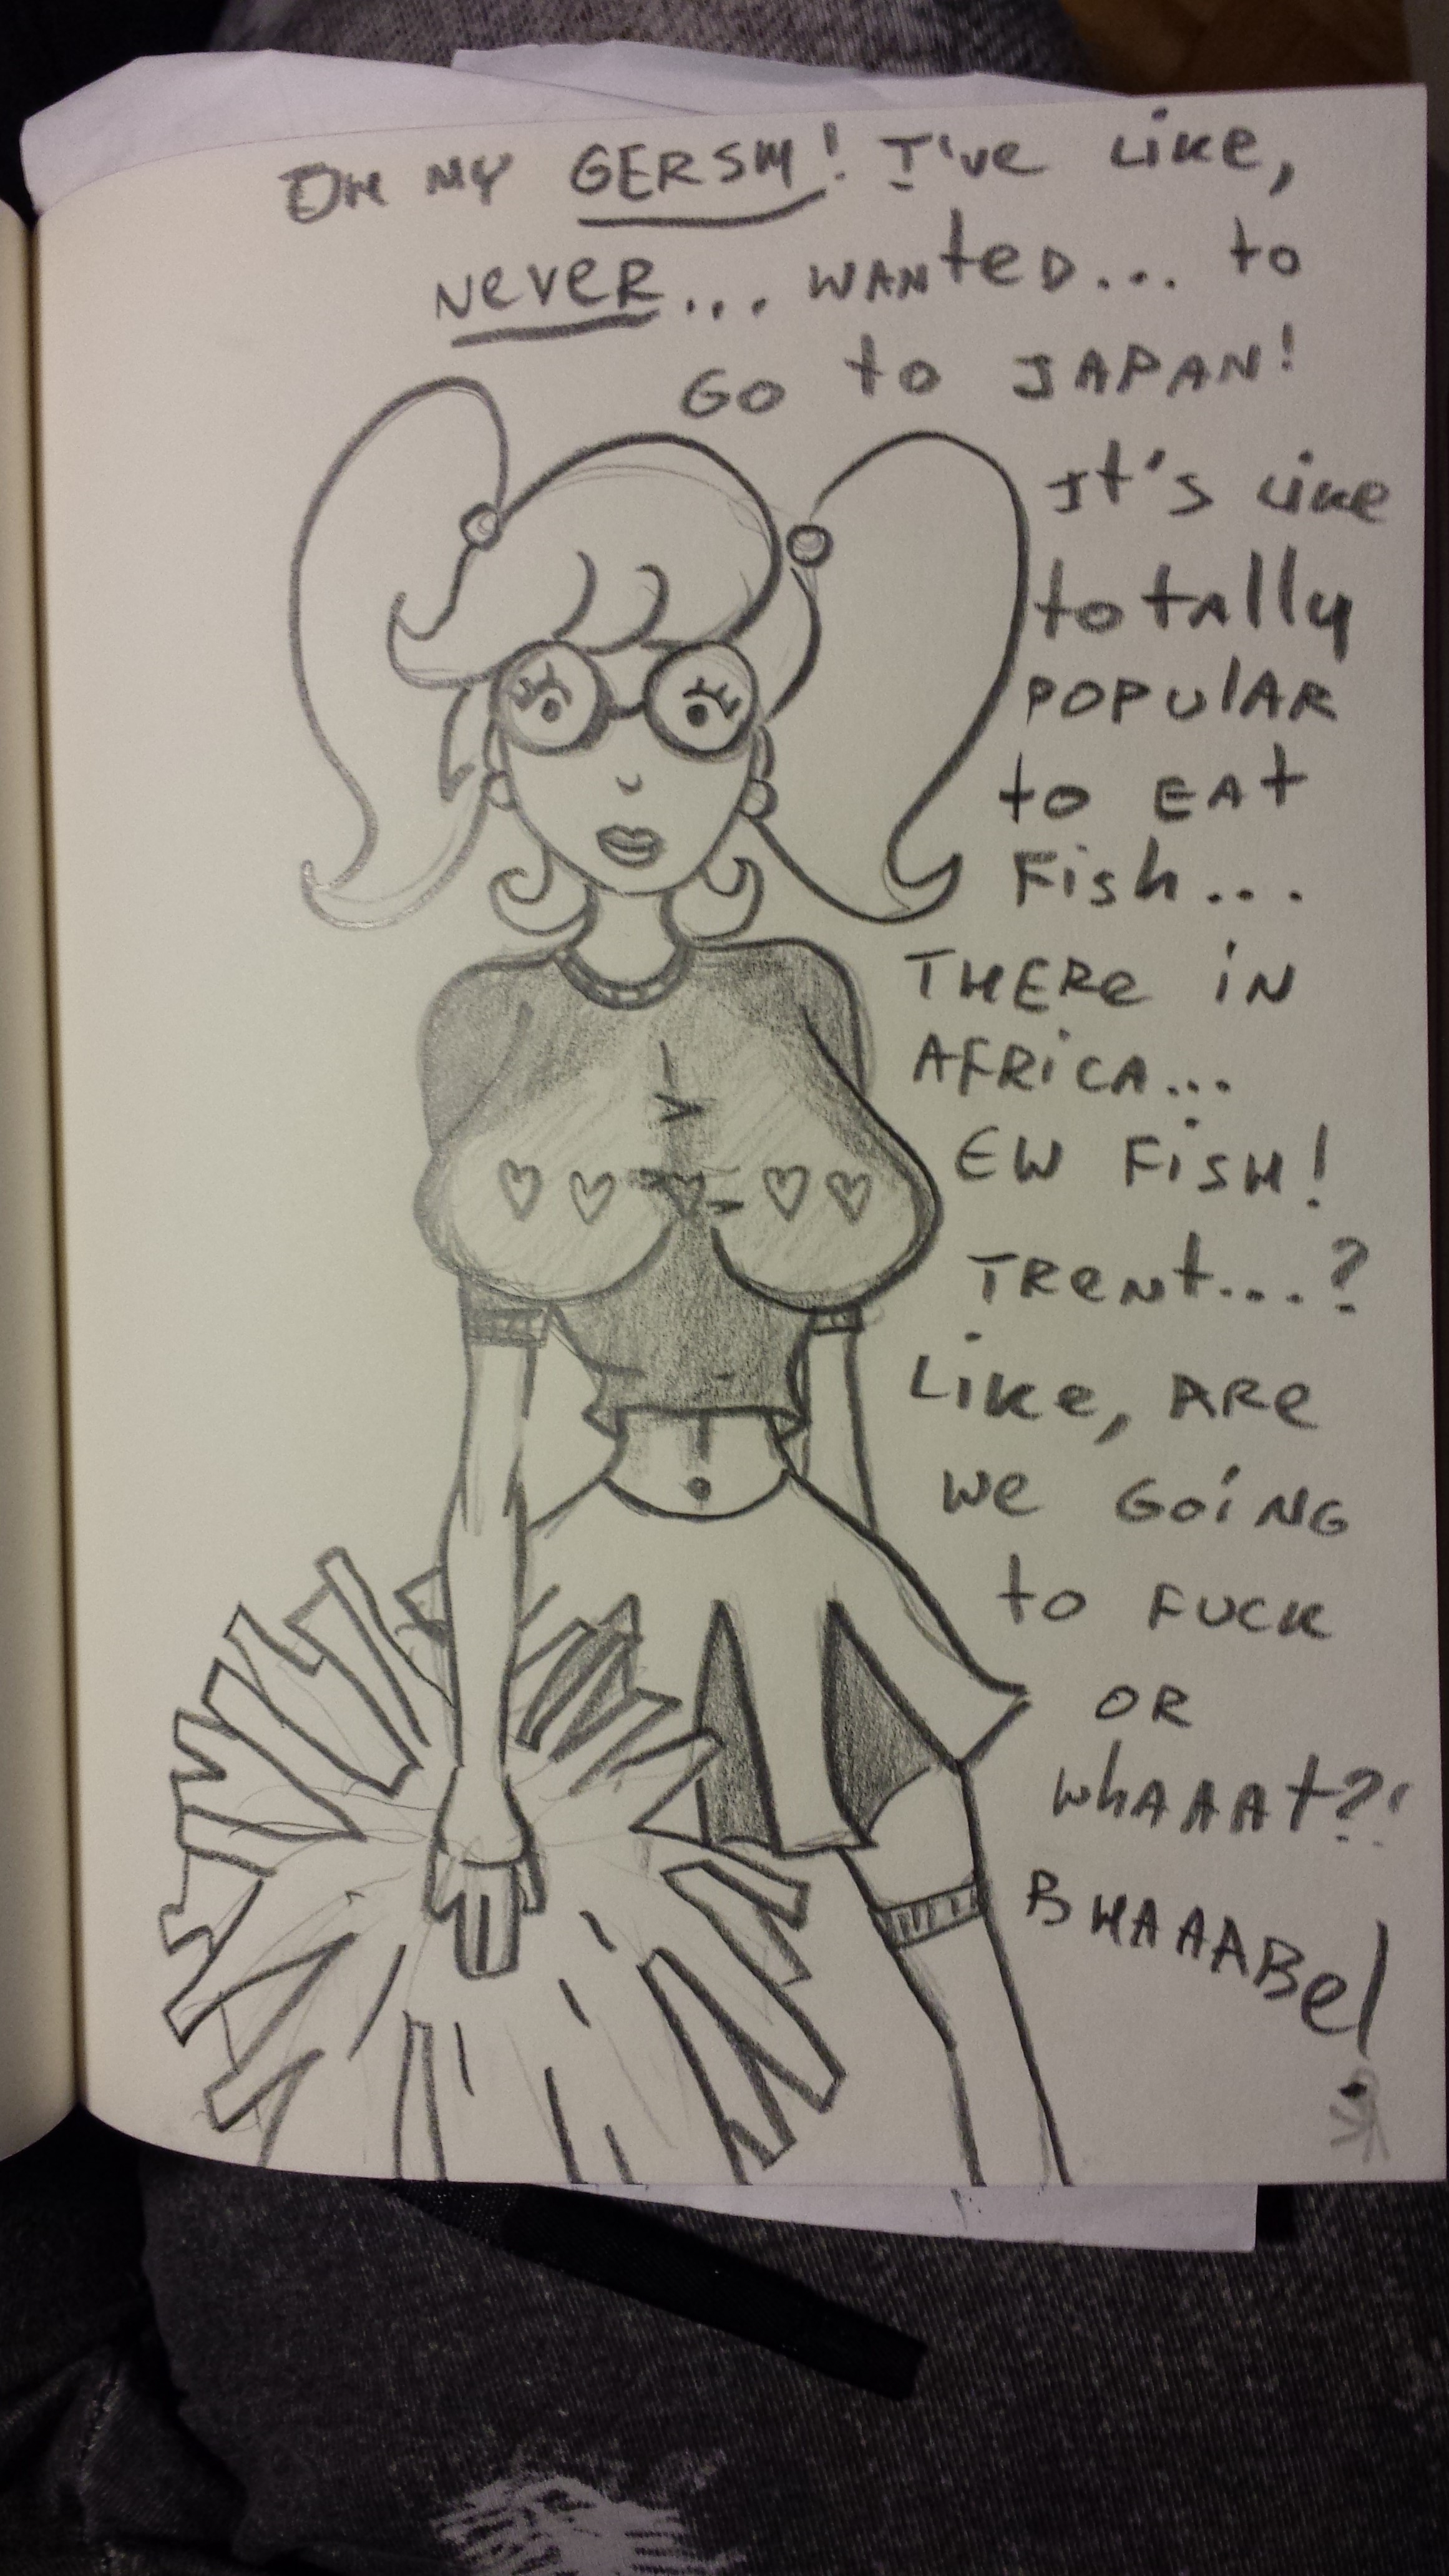 OH MY GERSH! I'VE LIKE,
NEVER... WANTED... to
GO to JAPAN!
It's LIKE
totAlly
POPULAR
to EAt
FisH...
THERE iN
AFRiCA...
EW FisH!
TRENt...?
LiKE, ARE
WE GOiNG
to FUCK
OR
WHAAAt?!
BHAAABE!